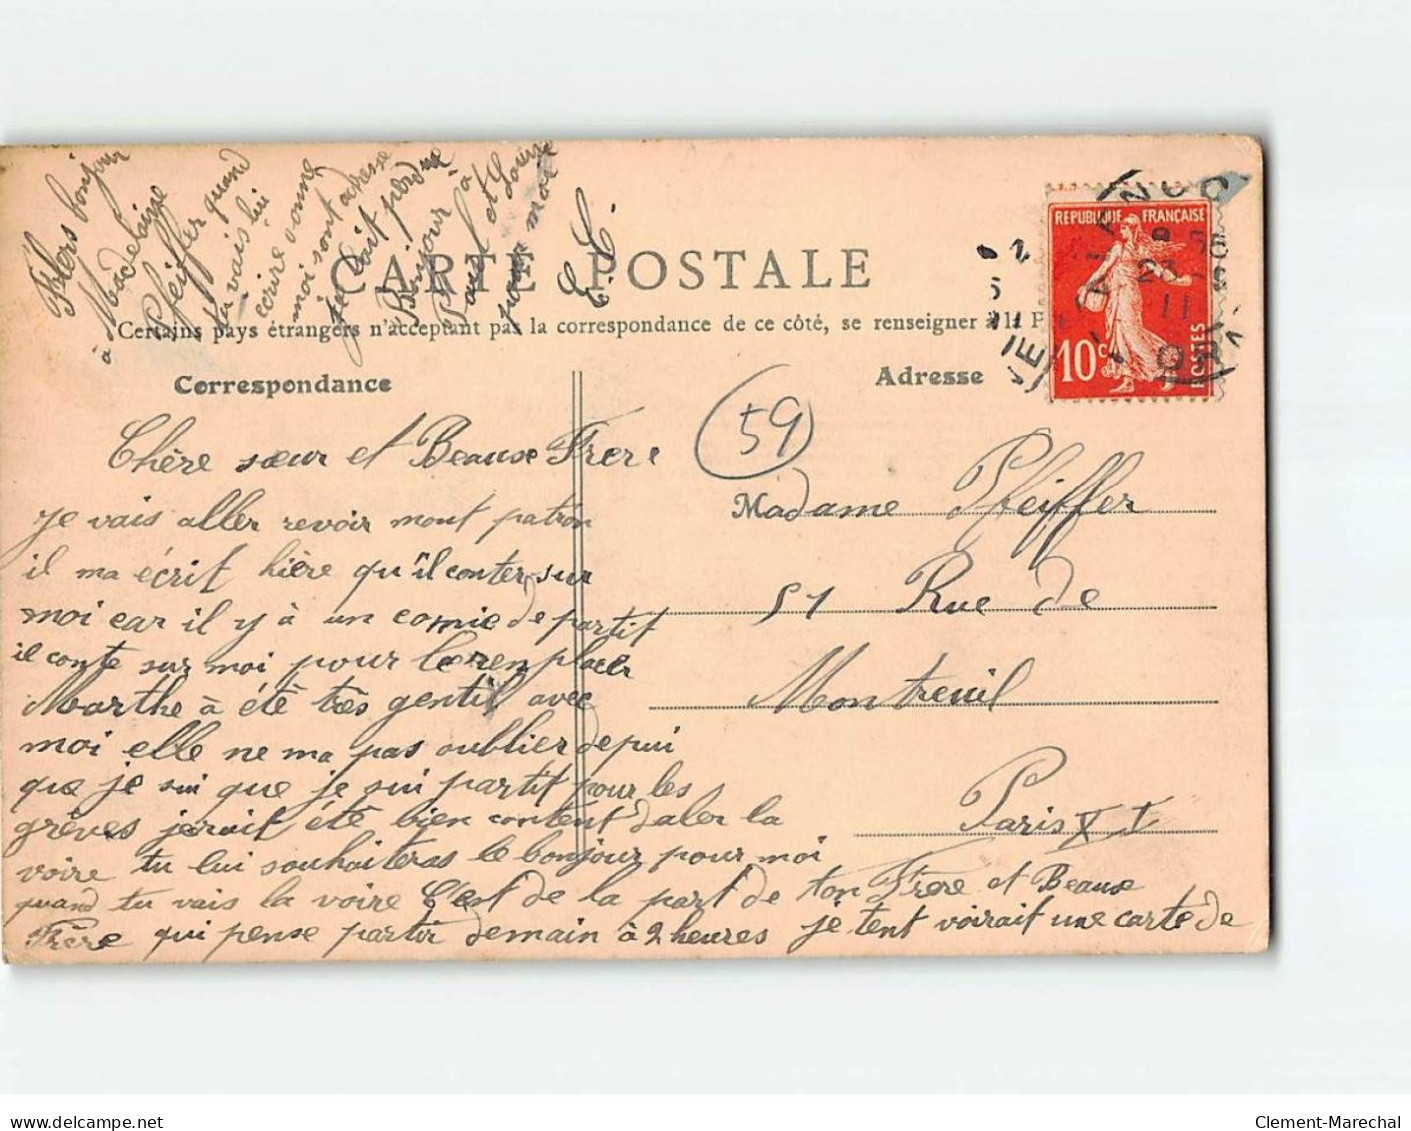 bonjour
à Madelaine
Pfeiffer quand
tu vais lui
ecrire donne
moi sont adresse
je lait perdue
Bonjour à
Paul et Louise
pour moi
CARTE POSTALE
Certains pays étrangers n'acceptant pas la correspondance de ce côté, se renseigner à la P
Correspondance
Adresse
REPUBLIQUE FRANÇAISE
10c
POSTES
59
Chère sœur et Beause Frere
je vais aller revoir mont patron
il ma écrit hière qu'il conter sur
moi car il y à un comie de partit
il conte sur moi pour le renplacer
Marthe à été très gentil avec
moi elle ne ma pas oublier depui
que je sui que je sui partit pour les
grèves jerait été bien content daler la
voire tu lui souhaiteras le bonjour pour moi
quand tu vais la voire C'est de la part de ton Frere et Beause
Frère qui pense partir demain à 2 heures je tent voirait une carte de
Madame Pfeiffer
51 Rue de
Montreuil
Paris XI
Clement-Marechal